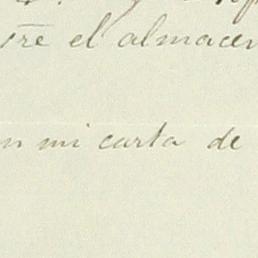 el almacen
n mi carta de